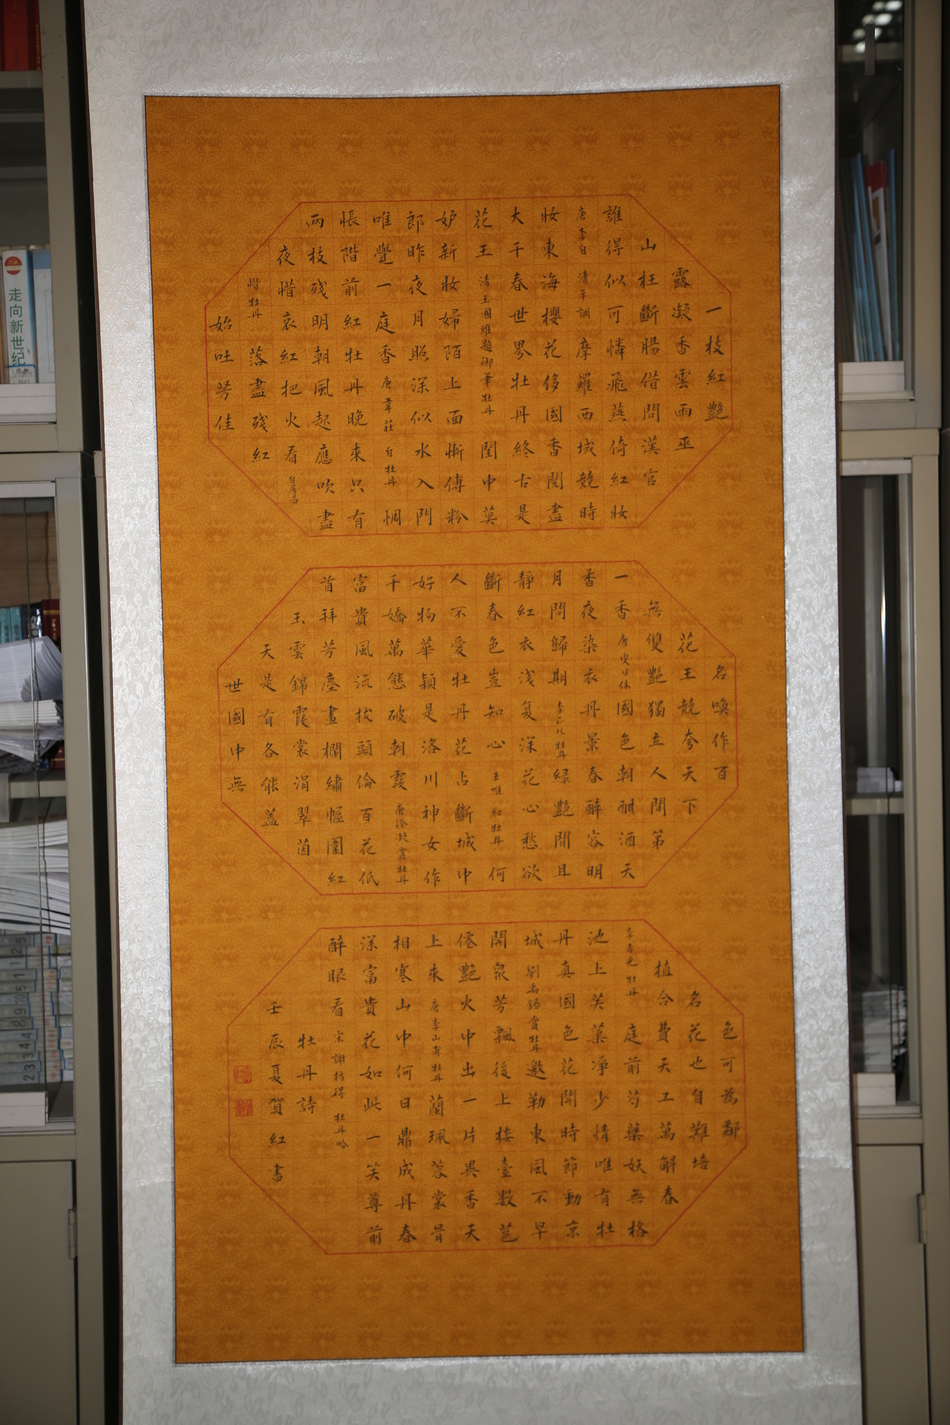 一枝紅艷
露凝香雲雨巫
山枉斷腸借問漢宮
誰得似可憐飛燕倚紅妝
唐李白 清平調 摩羅西域競時
妝東海櫻花侈國香閱盡
大千春世界牡丹終古是
花王 清王國維題御筆牡丹 閨中莫
妒新妝婦陌上面慚傅粉
郎昨夜月照深似水入門
唯覺一庭香 唐韋莊 白牡丹 惆
悵階前紅牡丹晚來只有
兩枝殘明朝風起應吹盡
夜惜衰紅把火看 白居易
惜牡丹 落盡殘紅
始吐芳佳
名喚作百
花王競夸天下
無雙艷獨立人間第
一香 唐皮日休 國色朝酣酒天
香夜染衣丹景春醉容明
月問歸期 李正封 牡丹 綠艷閒且
靜紅衣淺复深花心愁欲
斷春色豈知心 王維 紅牡丹 何
人不愛牡丹花占斷城中
好物華穎是洛川神女作
千嬌萬態破朝霞 唐徐凝 賞牡丹
富貴風流拔頭倫百花低
首拜芳塵畫欄繡幄圍紅
玉雲錦霞裳涓翠茵
天是有各能蓋
世國中無
色可為鄰
名花也自難培
植合費天工萬解春
李孝光 牡丹 庭前芍藥妖無格
池上芙蕖淨少情唯有牡
丹真國色花開時節動京
城 劉禹錫 賞牡丹 邀勒東風不早
開眾芳飄後上樓臺數苞
僊艷火中出一片異香天
上來 唐李山甫 牡丹 蘭珮蓉裳骨
相寒山中何日鼎成丹春
深富貴花如此一笑尊前
醉眼看 宋謝枋得 牡丹吟
牡丹詩
壬辰夏賀紅書
走向新世纪